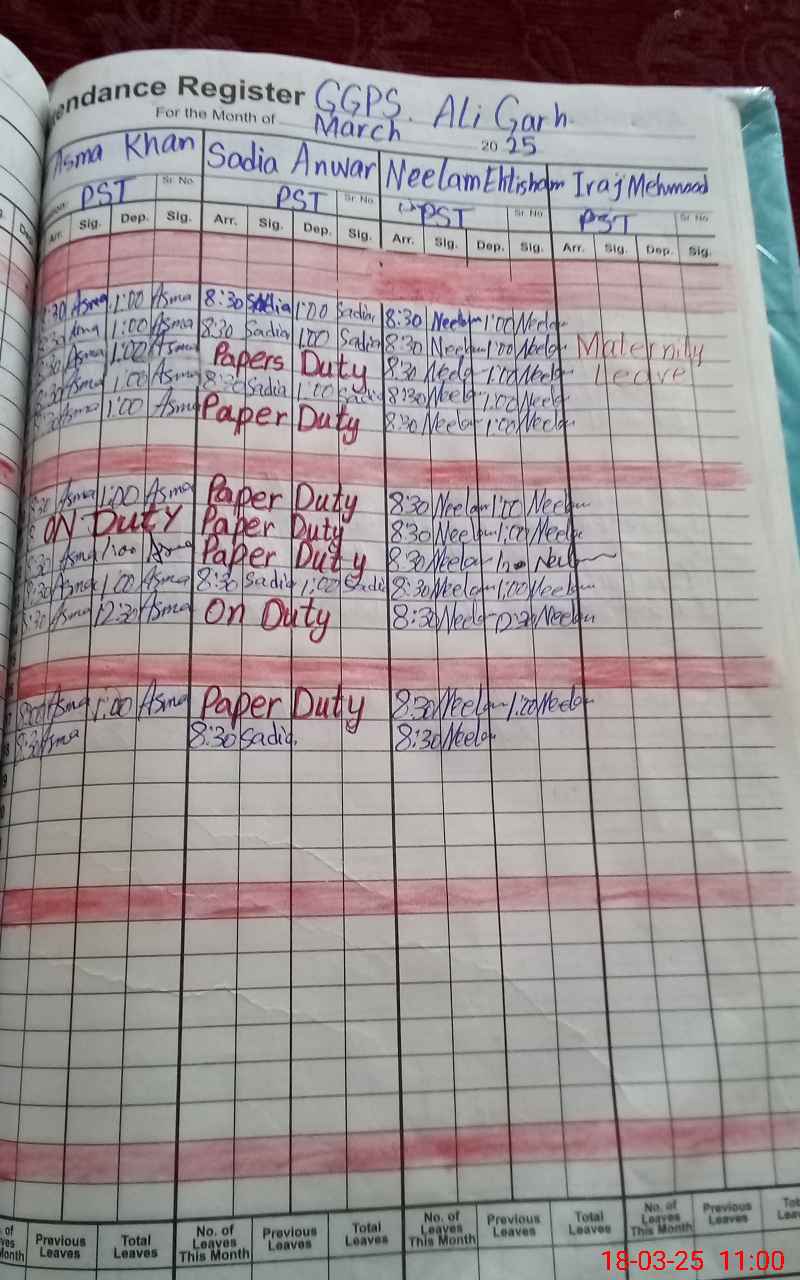 endance Register GGPS. Ali Garh.
For the Month of March 2025
Asma Khan Sadia Anwar Neelam Ehtisham Iraj Mehmood
PST Sr. No. PST Sr. No. PST Sr. No. PST Sr. No.
Arr. Sig. Dep. Sig. Arr. Sig. Dep. Sig. Arr. Sig. Dep. Sig. Arr. Sig. Dep. Sig.
:30 Asma 1:00 Asma 8:30 Sadia 1:00 Sadia 8:30 Neelam 1:00 Neelam
:30 Asma 1:00 Asma 8:30 Sadia 1:00 Sadia 8:30 Neelam 1:00 Neelam Maternity
:30 Asma 1:00 Asma Papers Duty 8:30 Neelam 1:00 Neelam Leave
:30 Asma 1:00 Asma 8:30 Sadia 1:00 Sadia 8:30 Neelam 1:00 Neelam
:30 Asma 1:00 Asma Paper Duty 8:30 Neelam 1:00 Neelam
:30 Asma 1:00 Asma Paper Duty 8:30 Neelam 1:00 Neelam
ON DUTY Paper Duty 8:30 Neelam 1:00 Neelam
:30 Asma 1:00 Asma Paper Duty 8:30 Neelam Neelam
8:30 Asma 1:00 Asma 8:30 Sadia 1:00 Sadia 8:30 Neelam 1:00 Neelam
8:30 Asma 12:30 Asma On Duty 8:30 Neelam 12:30 Neelam
8:00 Asma 1:00 Asma Paper Duty 8:30 Neelam 1:00 Neelam
8:30 Asma 8:30 Sadia 8:30 Neelam
of Leaves Month Previous Leaves Total Leaves No. of Leaves This Month Previous Leaves Total Leaves No. of Leaves This Month Previous Leaves Total Leaves No. of Leaves This Month Previous Leaves Total
18-03-25 11:00